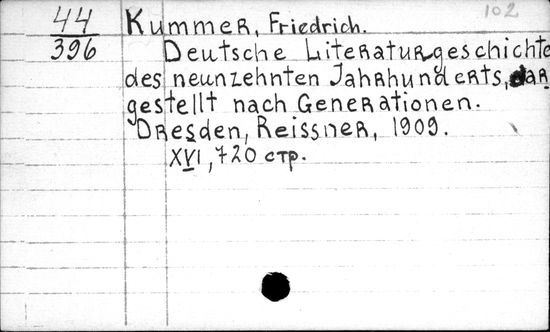 102
44 Kummer, Friedrich.
396 Deutsche Literaturgeschichte
des neunzehnten Jahrhunderts, dar
gestellt nach Generationen.
Dresden, Reissner, 1909.
XVI, 720 стр.